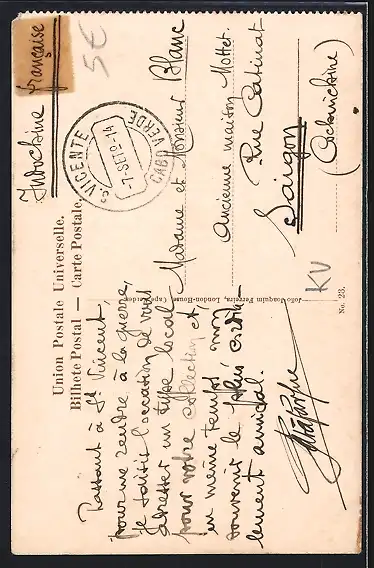 Union Postale Universelle.
Bilhete Postal — Carte Postale.
Passant à St Vincent,
pour me rendre à la guerre,
je saisis l'occasion de vous
adresser un type local
pour votre collection et,
en même temps mon
souvenir le plus cordia-
lement amical.
João Joaquim Ferreira, London-House, Cape Verdes
No. 23.
Indochine française
S. VICENTE
7 SET 9-14
CABO VERDE
Madame et Monsieur Blanc
Ancienne maison Mottet
Rue Catinat
Saigon
(Cochinchine)
5€
KV